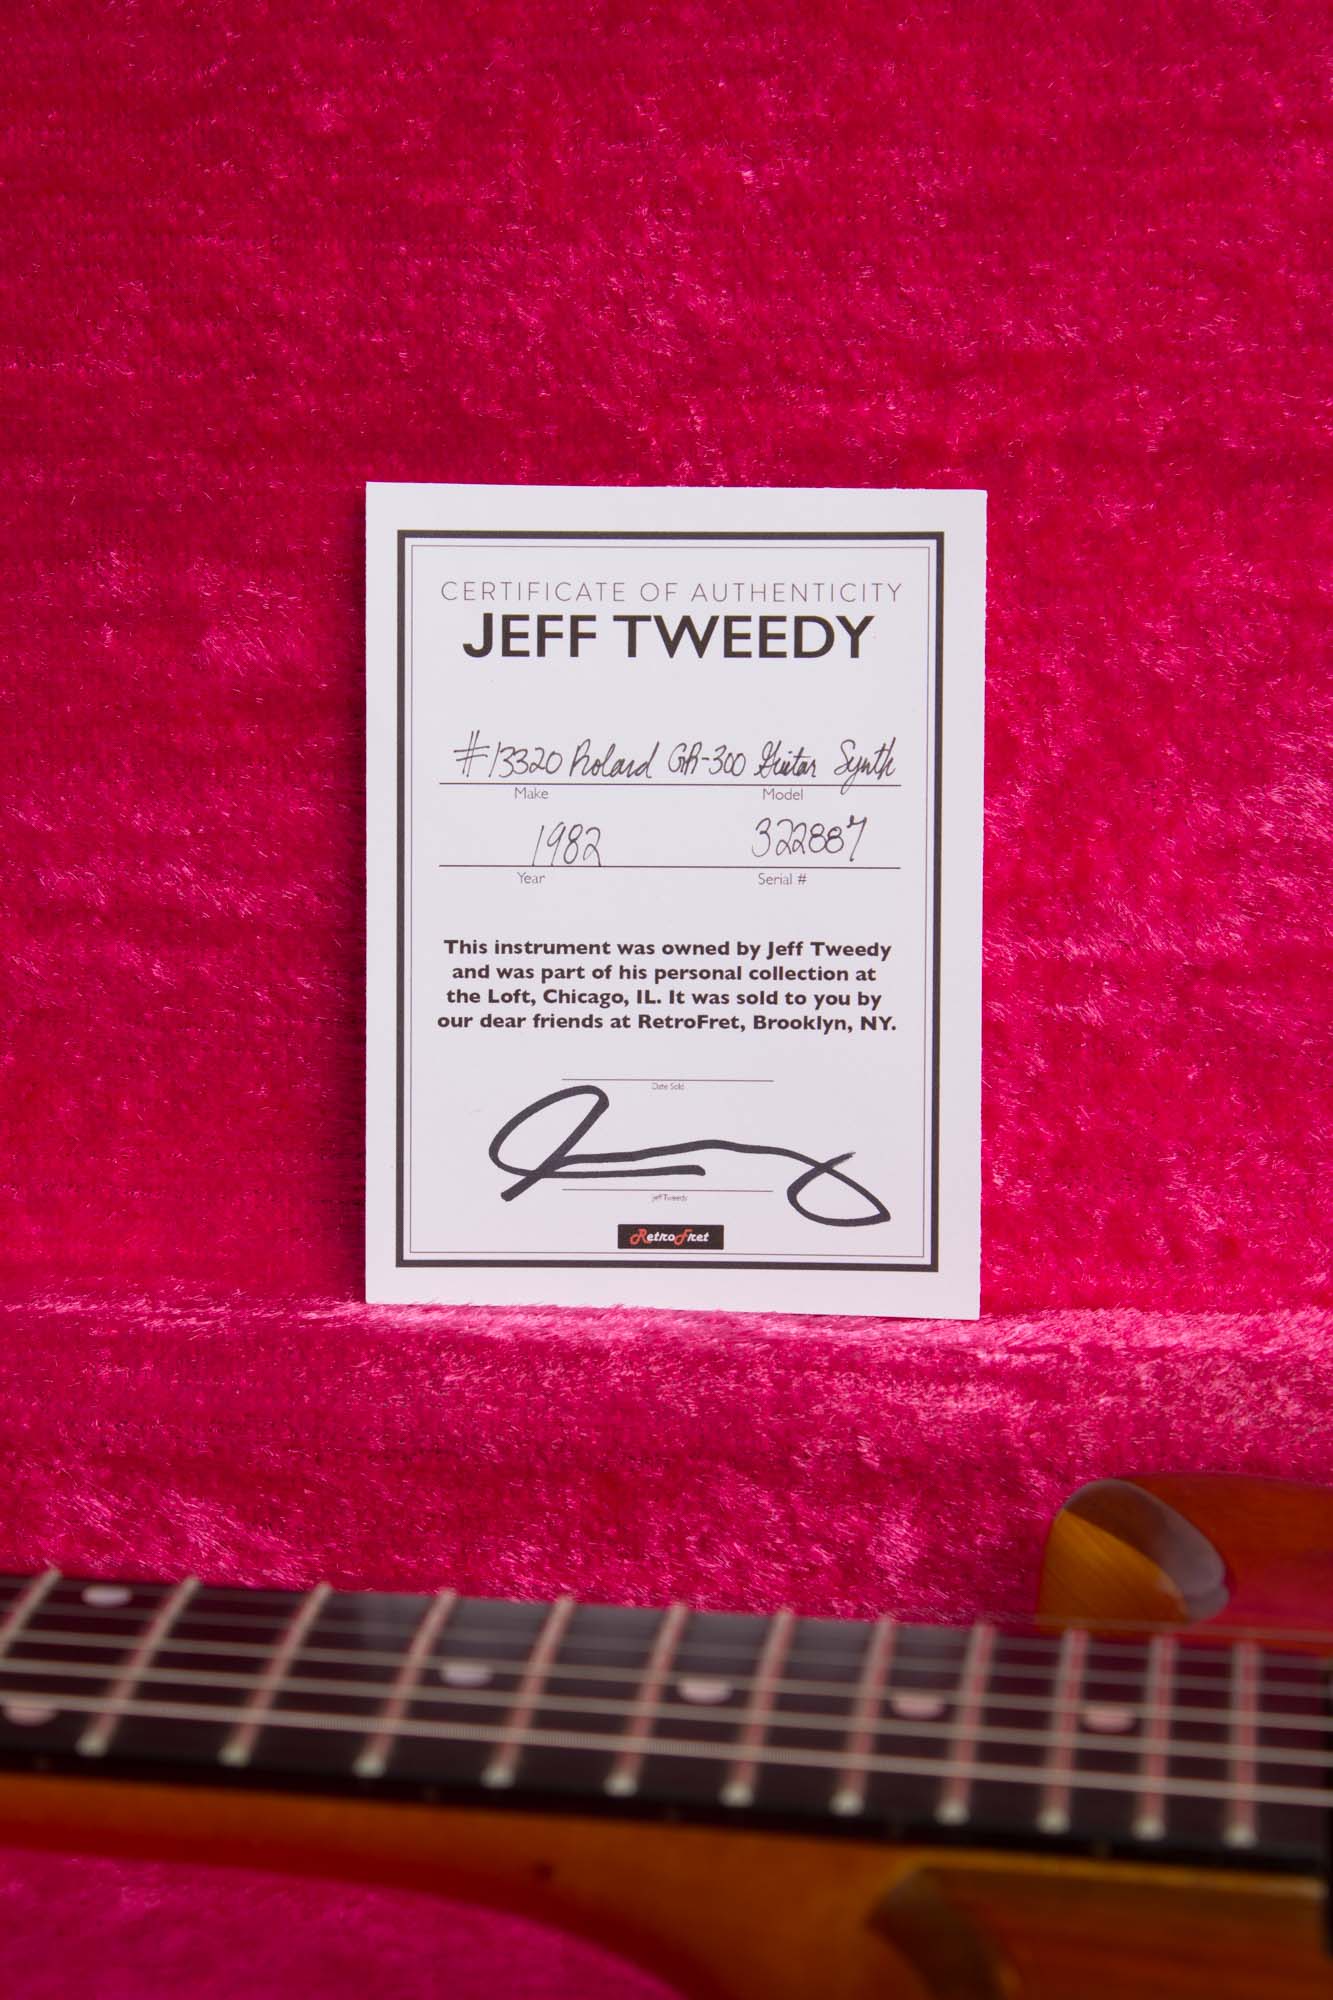 CERTIFICATE OF AUTHENTICITY
JEFF TWEEDY
#13320 Roland GR-300 Guitar Synth
Make Model
1982 322887
Year Serial #
This instrument was owned by Jeff Tweedy
and was part of his personal collection at
the Loft, Chicago, IL. It was sold to you by
our dear friends at RetroFret, Brooklyn, NY.
Date Sold
Jeff Tweedy
RetroFret